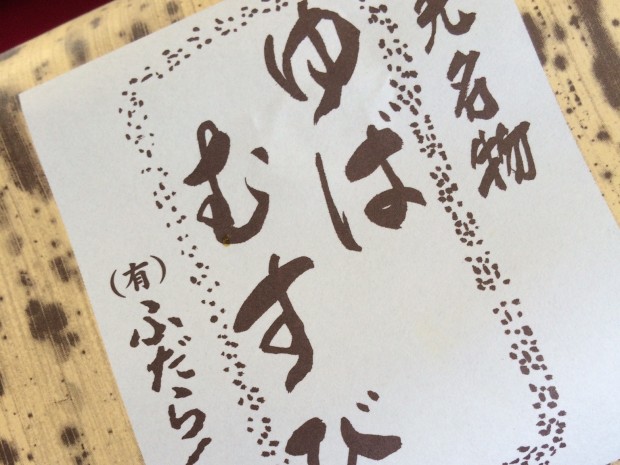 光名物
ゆば
むすび
(有)ふだら